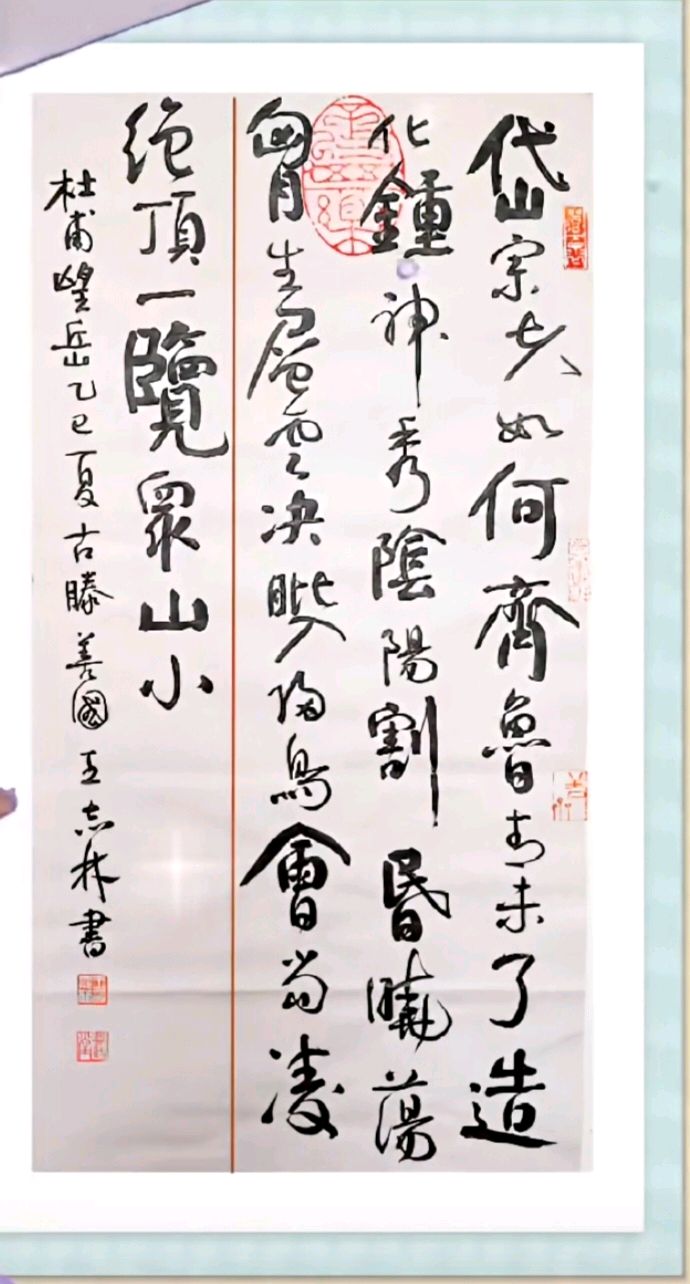 岱宗夫如何齊魯青未了造
化鍾神秀陰陽割昬曉蕩
胷生層雲决眦入歸鳥會當凌
絶頂一覽眾山小
杜甫望岳乙巳夏古滕善國王志林書